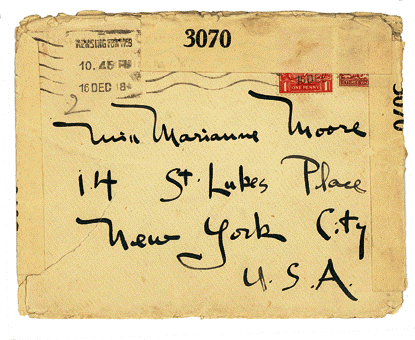 3070
KENSINGTON W8
10.45 PM
16 DEC 18
2
15 DEC
1 ONE PENNY 1
3070
Miss Marianne Moore
14 St. Lukes Place
New York City
U.S.A.